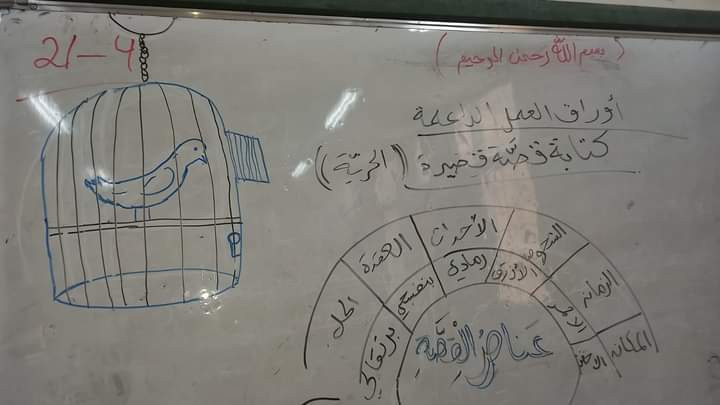 21-4
(بسم الله الرحمن الرحيم)
أوراق العمل الداعمة
كتابة قصّة قصيرة (الحريّة)
المكان
الزمان
الشخوص
الأحداث
العقدة
الحل
الأخضر
الأحمر
الأزرق
رمادي
بنفسجي
برتقالي
عناصر القصّة